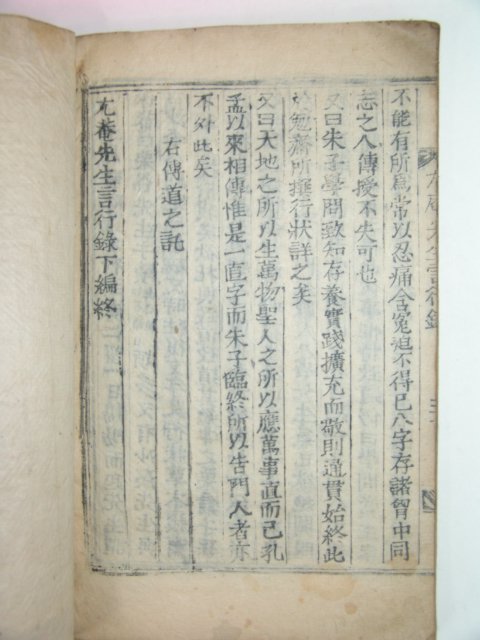 不能有所爲常以忍痛含冤迫不得已八字存諸胷中同
志之人傳授不失可也
又曰朱子學問致知存養實踐擴充而敬則通貫始終此
於勉齋所撰行狀詳之矣
又曰天地之所以生萬物聖人之所以應萬事直而已孔
孟以來相傳惟是一直字而朱子臨終所以告門人者亦
不外此矣
右傳道之託
尤菴先生言行錄下編終